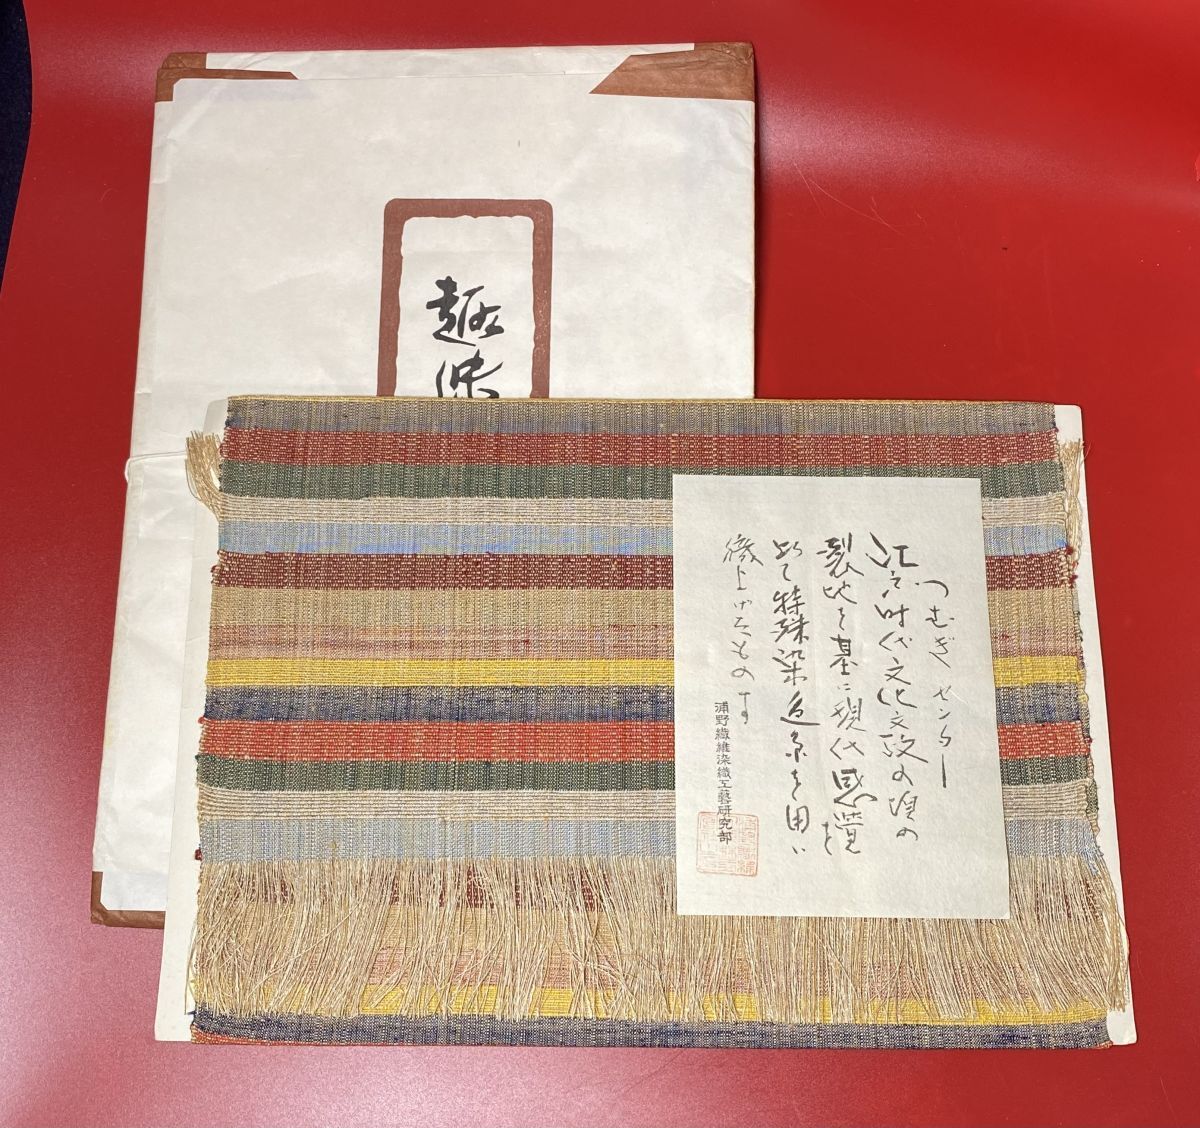 趣味
つむぎ センター
江戸時代文化文政の頃の
製比を基に現代感覚を
以て特殊染色糸を用い
織上げたもの です
浦野繊維染織工藝研究部